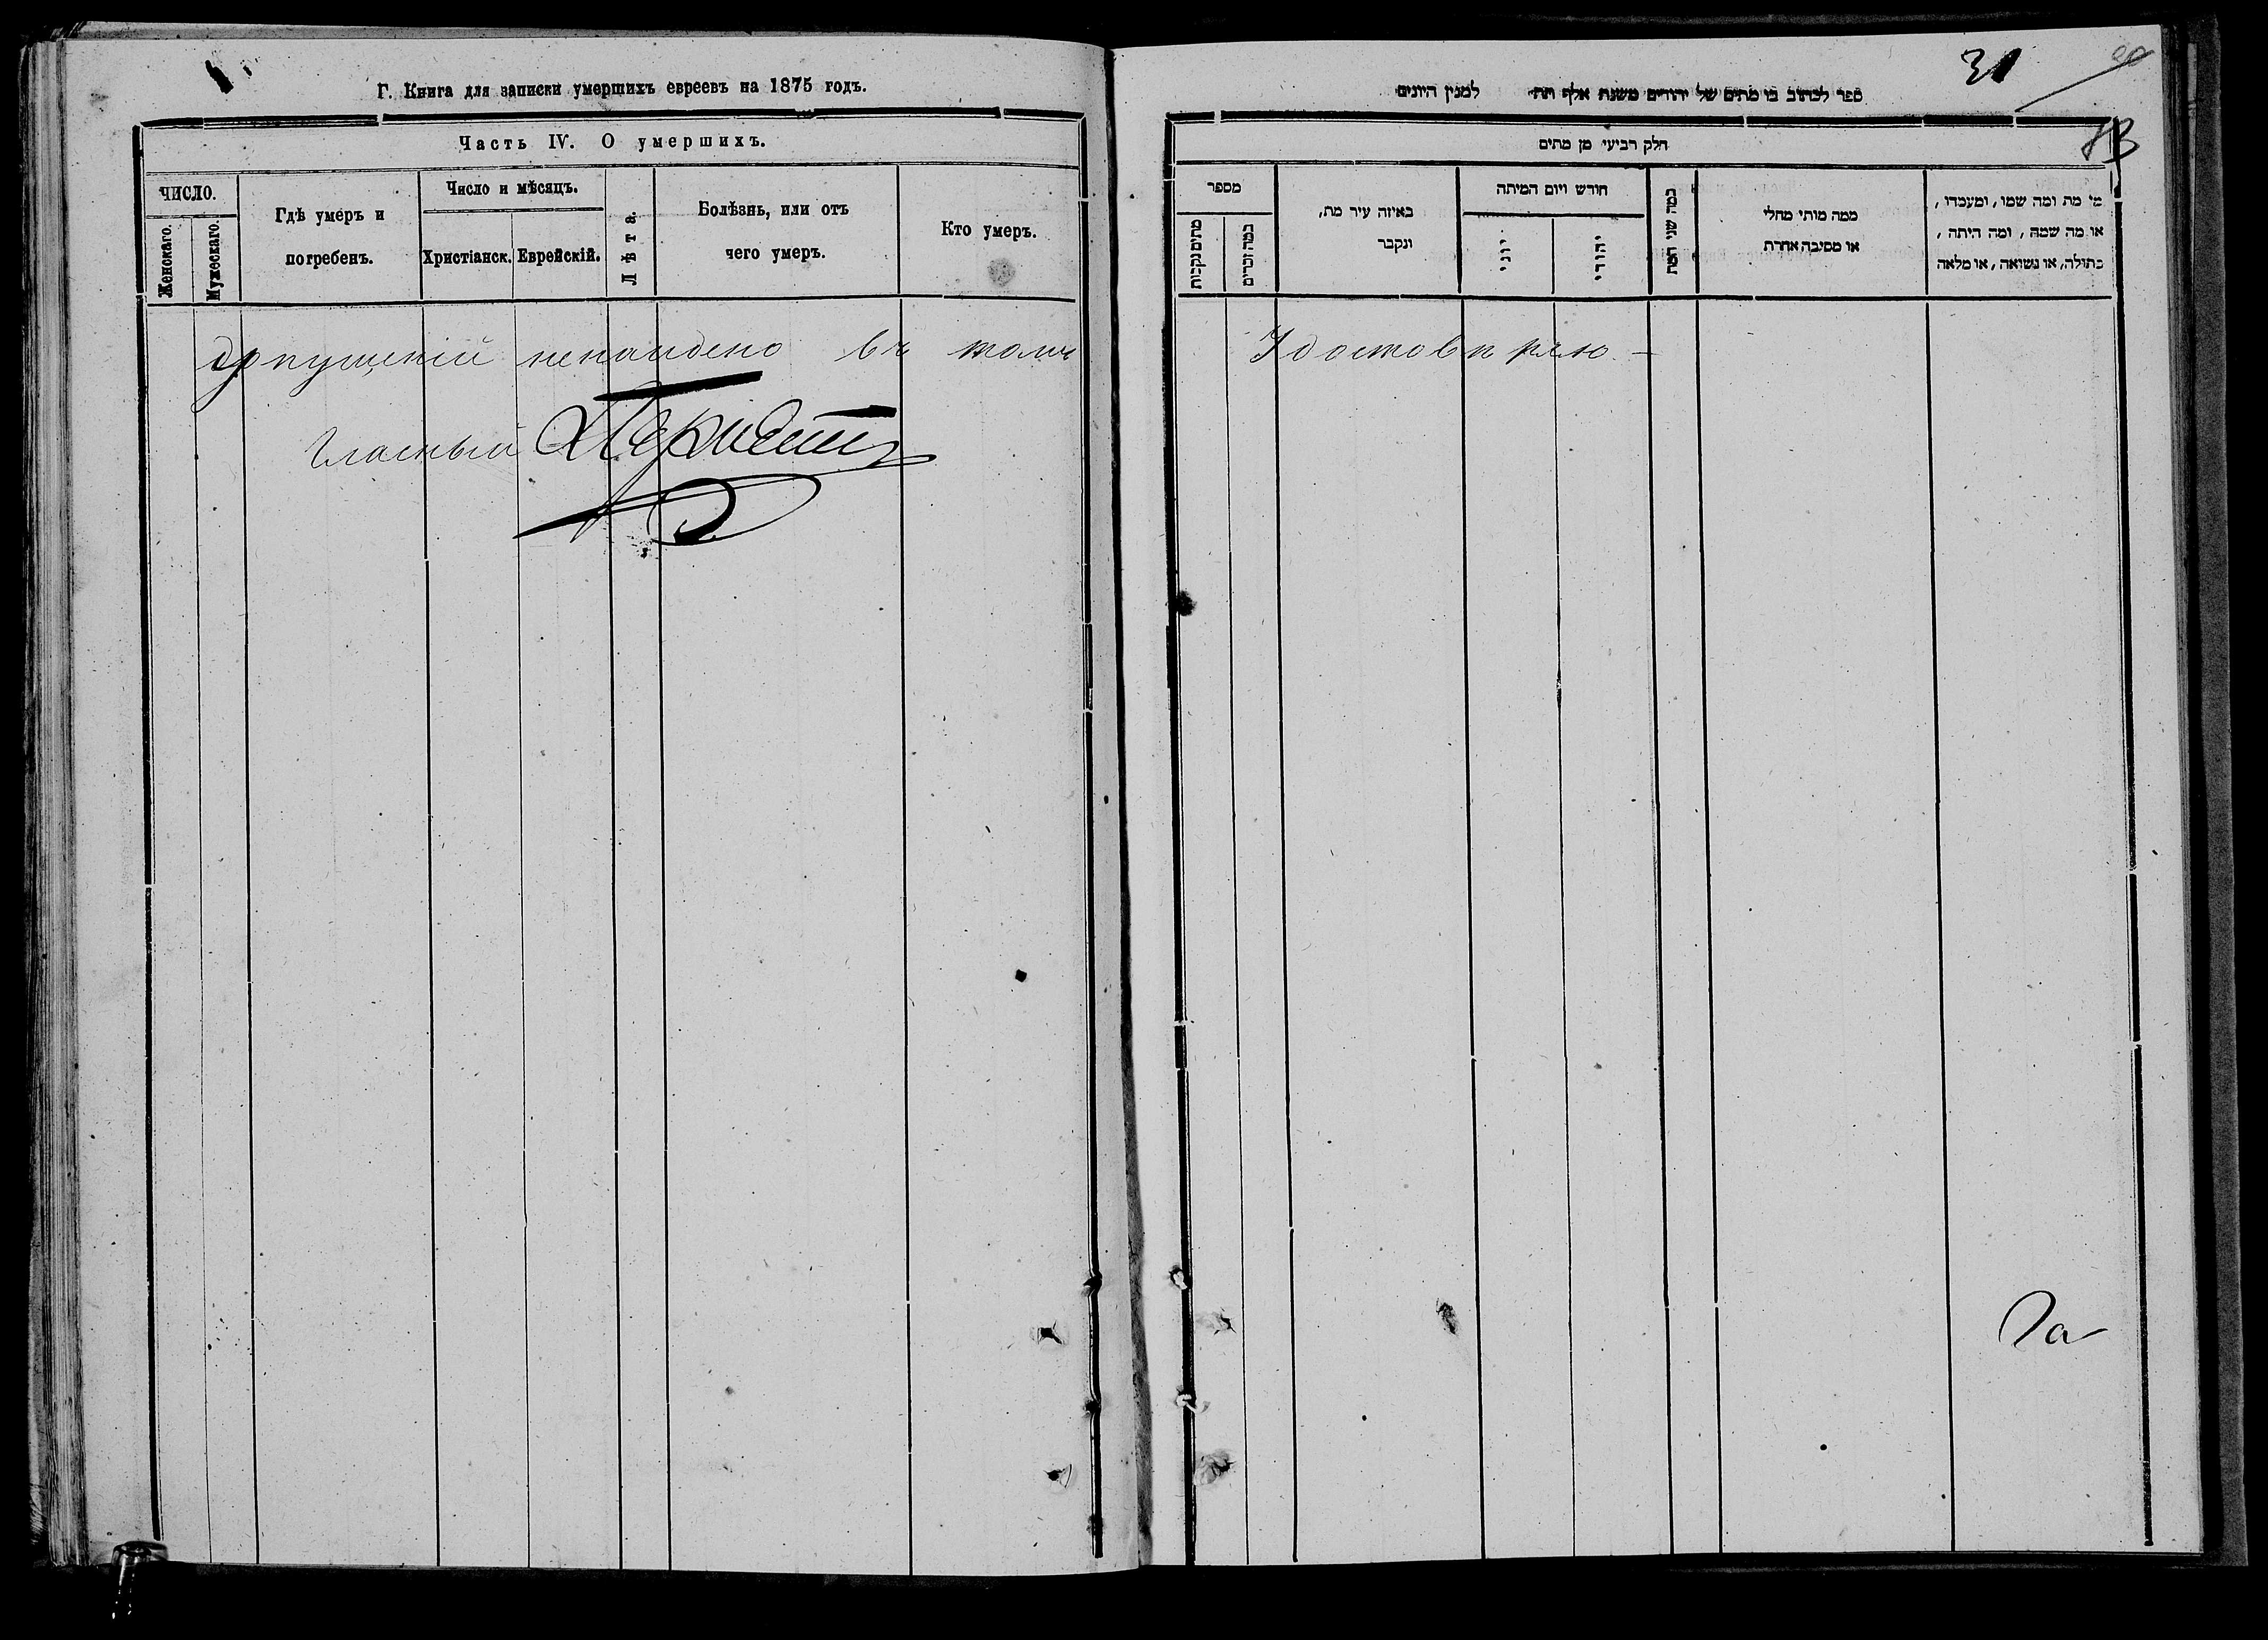 Г. Книга для записки умершихъ евреевъ на 1875 годъ.
Часть IV. О умершихъ.
ЧИСЛО.
Женскаго.
Мужескаго.
Гдѣ умеръ и
погребенъ.
Число и мѣсяцъ.
Христіанск.
Еврейскій.
Лѣта.
Болѣзнь, или отъ
чего умеръ.
Кто умеръ.
упущеній ненайдено въ томъ
Гласный
31
ספר לכתוב בו מתים של יהודים משנת אלף תת למנין היונים
חלק רביעי מן מתים
מספר
מתים נקבות
כמה זכרים
באיזה עיר מת,
ונקבר
חודש ויום המיתה
יוני
יהודי
כמה שני המת
ממה מותי מחלי
או מסיבה אחרת
מי מת ומה שמו, ומעמדו,
או מה שמה, ומה היתה,
בתולה, או נשואה, או מלאה
Удостовѣряю. —